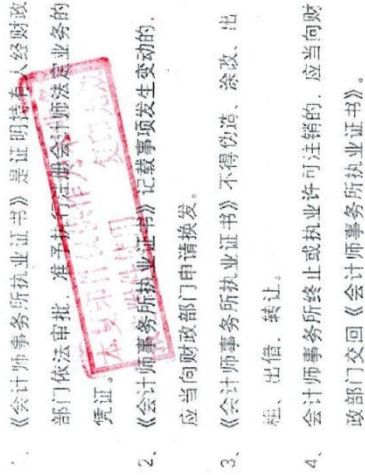 《会计师事务所执业证书》是证明持有人经财政
部门依法审批，准予执行注册会计师法定业务的
凭证。
2、《会计师事务所执业证书》记载事项发生变动的，
应当向财政部门申请换发。
3、《会计师事务所执业证书》不得伪造、涂改、出
租、出借、转让。
4、会计师事务所终止或执业许可注销的，应当向财
政部门交回《会计师事务所执业证书》。